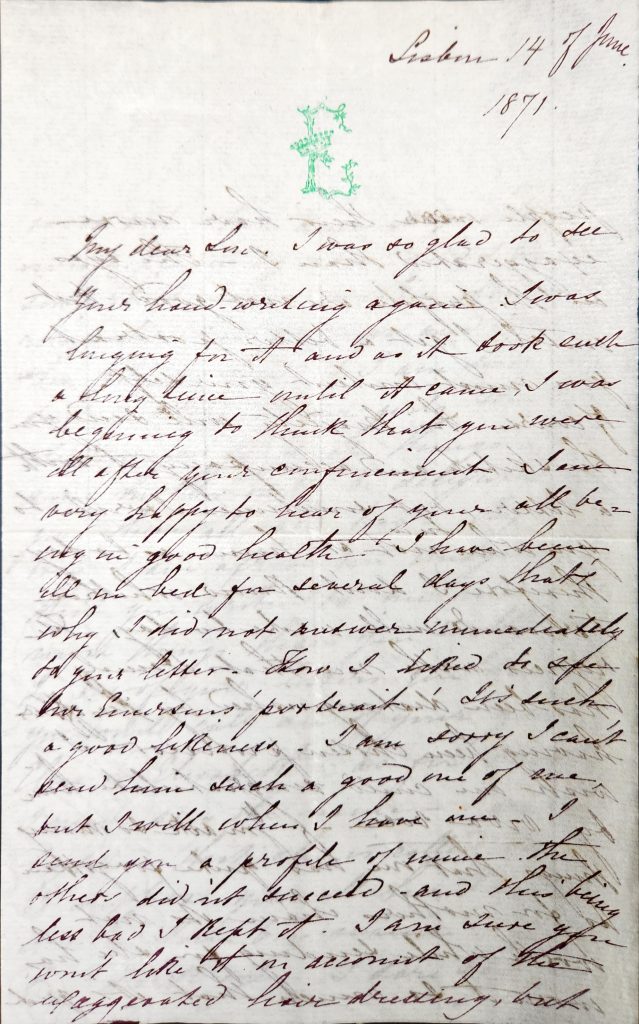 Lisbon 14 of June
1871.
E
My dear Sir. I was so glad to see
Your hand-writing again. I was
longing for it and as it took such
a long time until it came, I was
begining to think that you were
ill after your confinement I am
very happy to hear of your all be-
ing in good health. I have been
ill in bed for several days that's
why I did not answer immediately
to your letter. How I liked to see
Mr Emersons' portrait! Its such
a good likeness. I am sorry I can't
send him such a good one of me,
but I will when I have one. I
send you a profile of mine. The
others did nt succeed and this being
less bad I kept it I am sure you
won't like it on account of the
exaggerated hair dressing, but